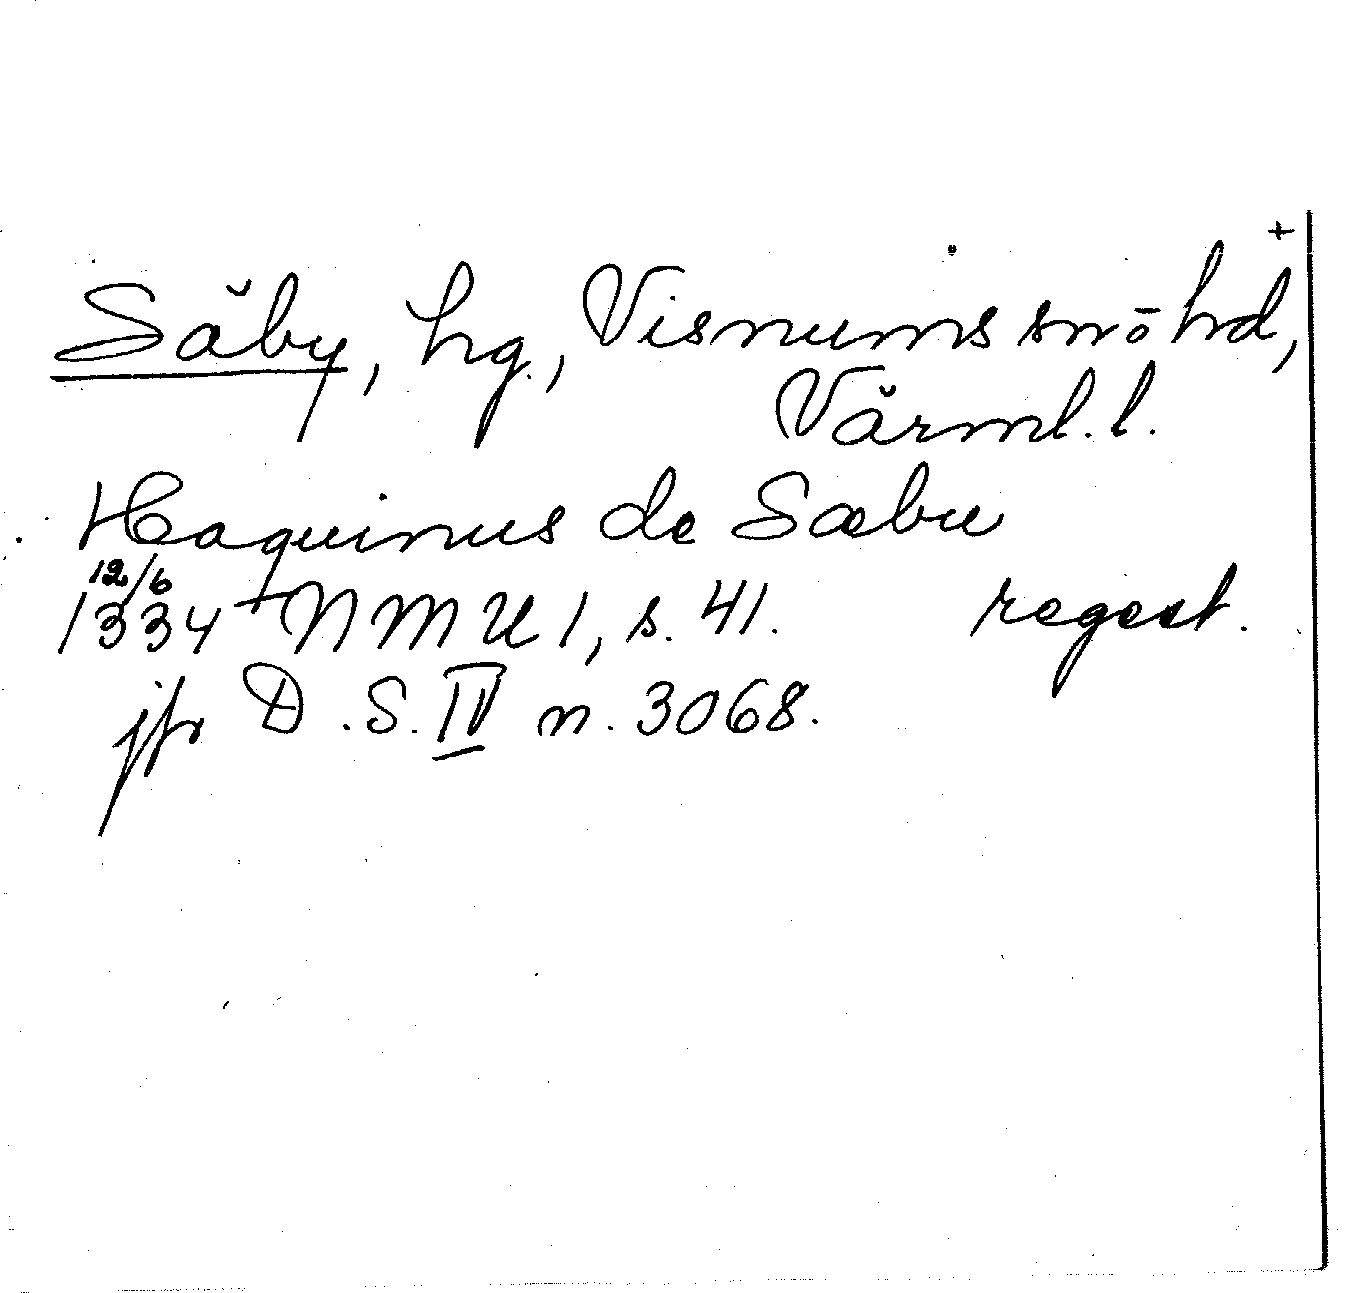 +
Säby, hg., Visnums snö hd,
Värml. l.
Haquinus de Sæbu
12/6
1334 NMU 1, s. 41. regest.
jfr D.S. IV n. 3068.